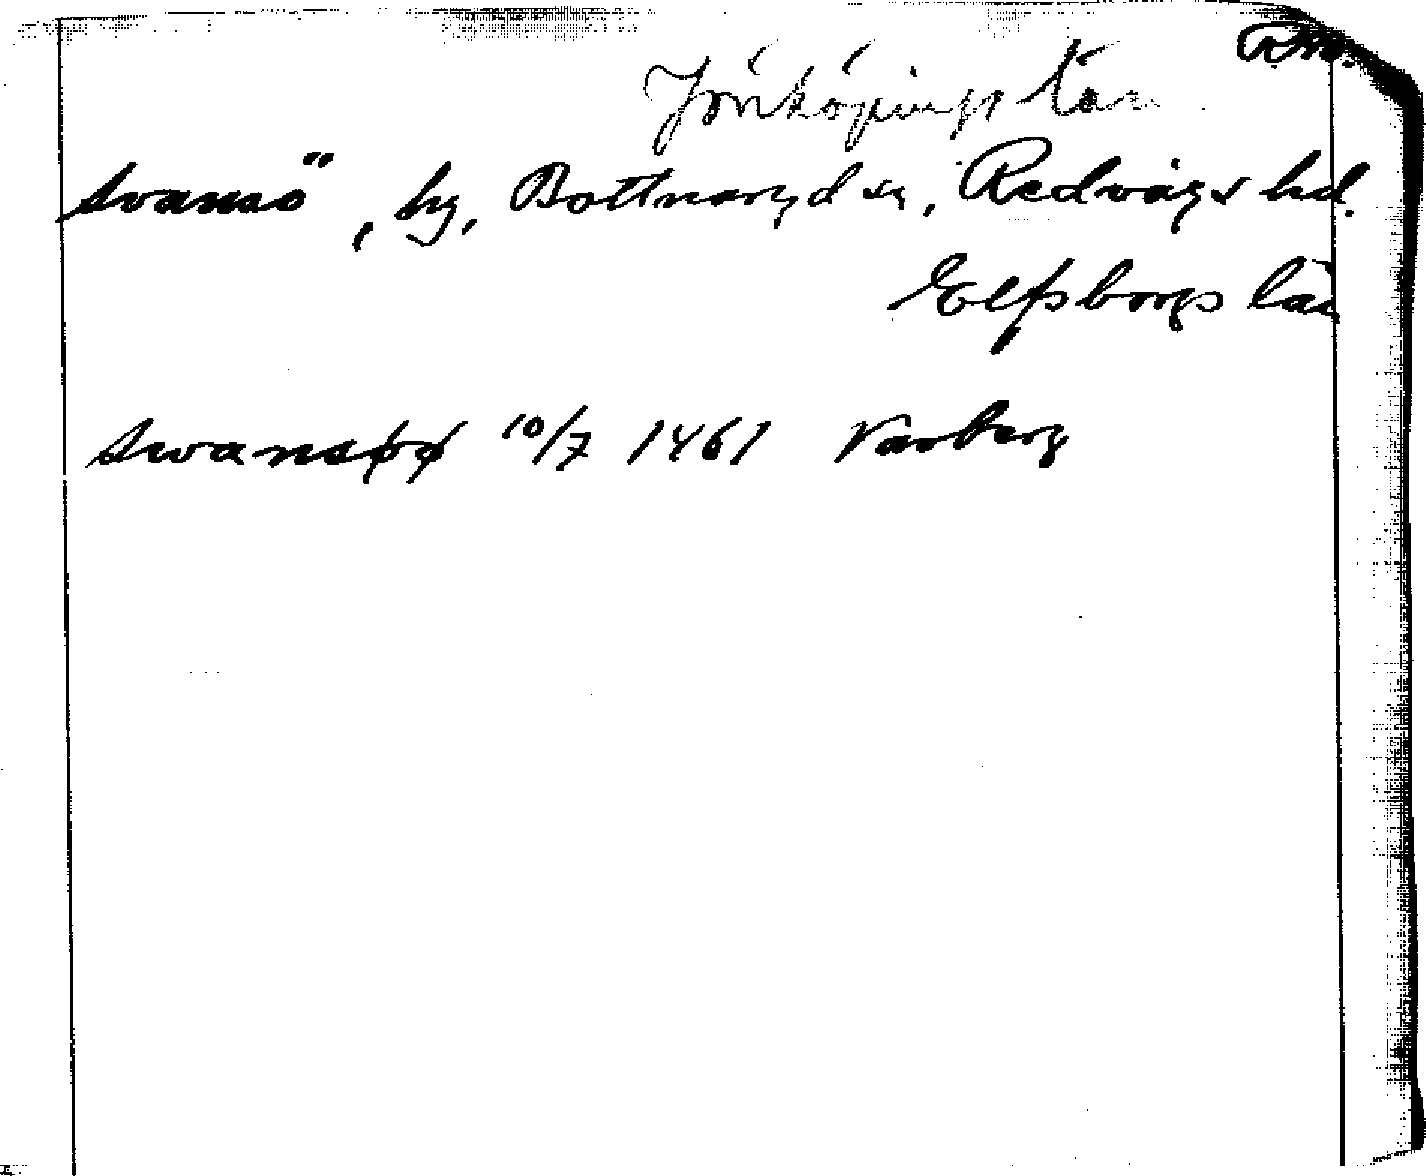 Jönköpings län
Svansö, by, Bottnaryd sn, Redvägs hd.
Elfsborgs län
Swansøø 10/7 1461 Varberg